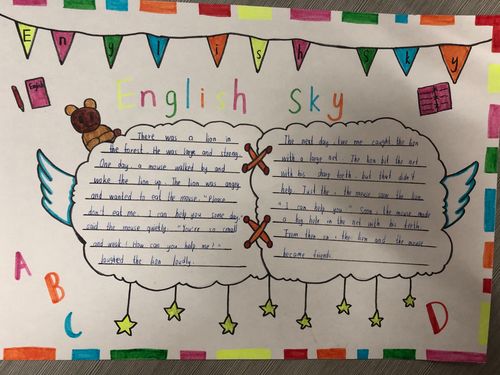 English sky
English
English Sky
There was a lion in
the forest. He was large and strong.
One day a mouse walked by and
woke the lion up. The lion was angry
and wanted to eat the mouse. "Please
don't eat me. I can help you some day."
said the mouse quietly. "You're so small
and weak! How can you help me?"
laughed the lion loudly.
The next day two men caught the lion
with a large net. The lion bit the net
with his sharp teeth, but that didn't
help. Just then, the mouse saw the lion
"I can help you." Soon, the mouse made
a big hole in the net with his teeth.
From then on, the lion and the mouse
became friends.
A
B
C
D